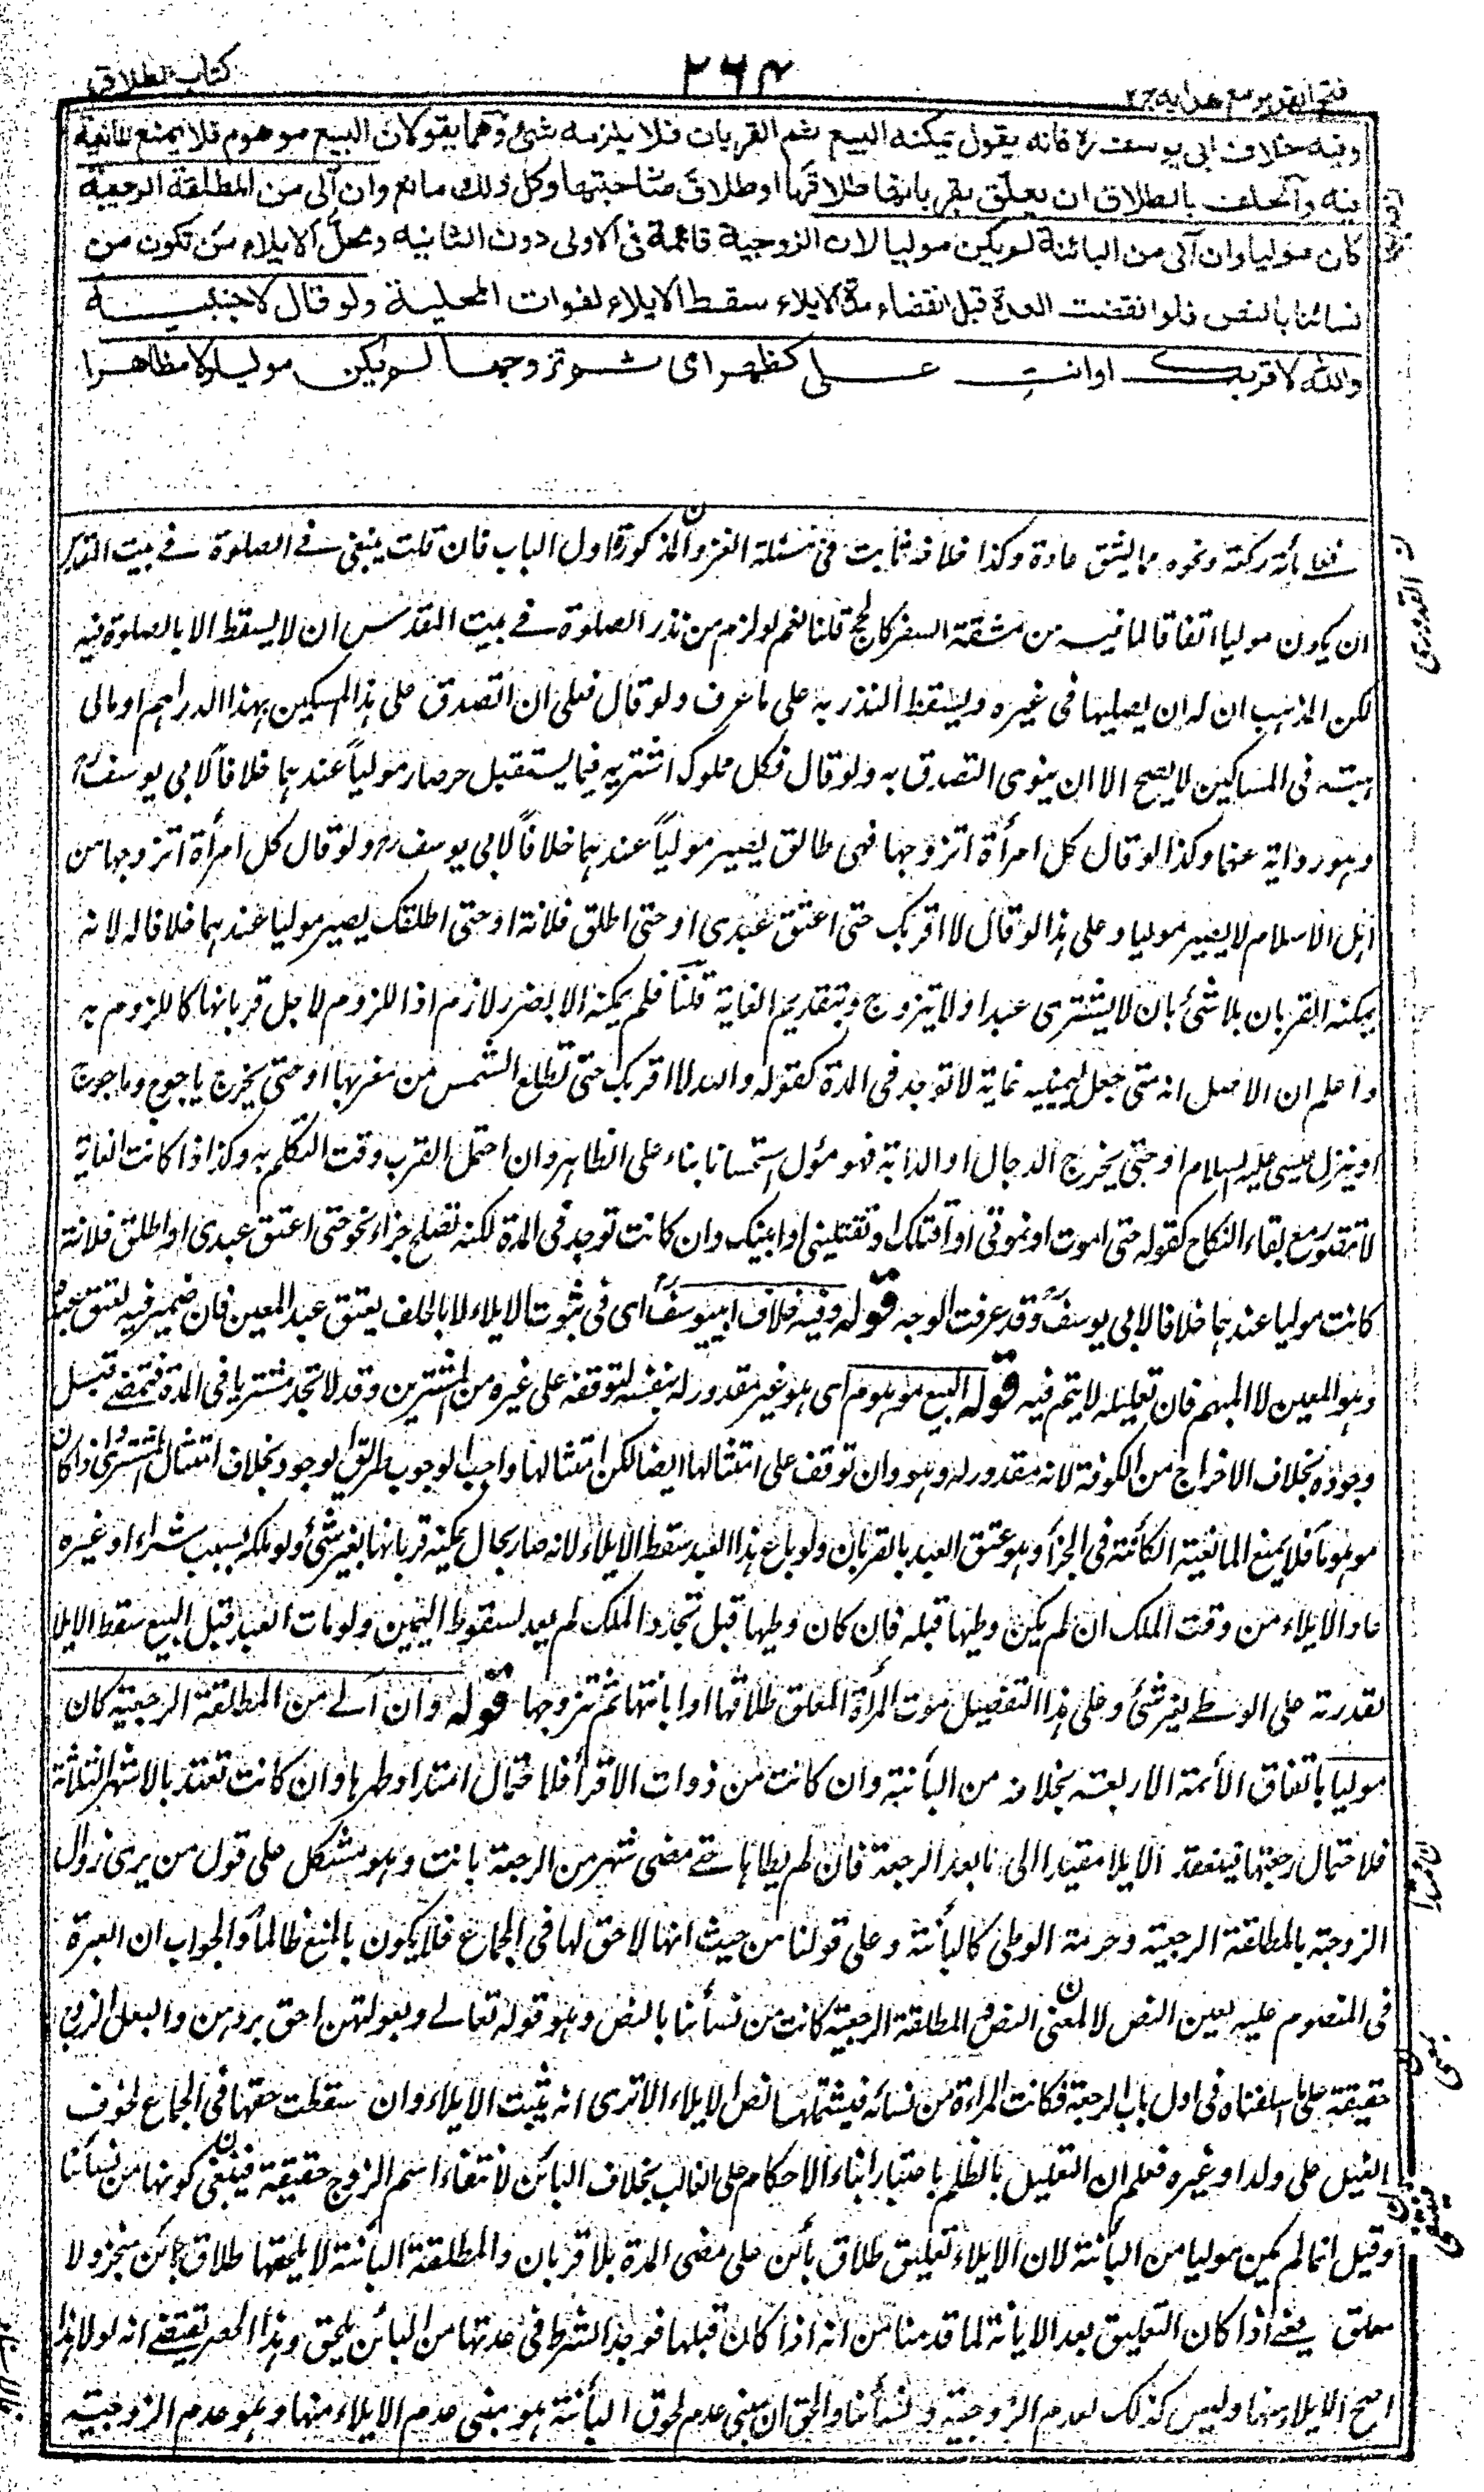 فتح القدير مع هدايه ج٢
٢٦٤
كتاب الطلاق
وفيه خلاف ابى يوسف رح فانه يقول يمكنه البيع ثم القربان فلا يلزمه شئ وهما يقولان البيع موهوم فلا يمنع المانعية
فيه والحلف بالطلاق ان يعلق بقربانها طلاقها او طلاق صاحبتها وكل ذلك مانع وان آلى من المطلقة الرجعية
كان موليا وان آلى من البائنة لم يكن موليا لان الزوجية قائمة فى الاولى دون الثانيه ومحل الايلاء من تكون من
نسائنا بالنص فلو انقضت العدة قبل انقضاء مدة الايلاء سقط الايلاء لفوات المحلية ولو قال لاجنبية
والله لا اقربك او انت على كظهر امى ثم تزوجها لم يكن موليا ولا مظاهرا
فعلى مائة ركعة ونحوه مما يشق عادة وكذا خلافه ثابت فى مسئلة الغزو المذكورة اول الباب فان قلت ينبغى فى الصلوة فى بيت المقدس
ان يكون موليا اتفاقا لما فيه من مشقة السفر كالحج قلنا نعم لو لزم من نذر الصلوة فى بيت المقدس ان لا يسقط الا بالصلوة فيه
لكن المذهب ان له ان يصليها فى غيره ويسقط النذر به على ما عرف ولو قال فعلى ان اتصدق على هذا المسكين بهذا الدراهم او مالى
هبته فى المساكين لا يصح الا ان ينوى التصدق به ولو قال فكل مملوك اشتريه فيما يستقبل حر صار موليا عندهما خلافا لابى يوسف رح
وهو رواية عنهما وكذا لو قال كل امرأة اتزوجها فهى طالق يصير موليا عندهما خلافا لابى يوسف رح ولو قال كل امرأة اتزوجها من
اهل الاسلام لا يصير موليا وعلى هذا لو قال لا اقربك حتى اعتق عبدى او حتى اطلق فلانة او حتى اطلقك يصير موليا عندهما خلافا له لانه
يمكنه القربان بلا شئ بان لا يشترى عبدا ولا يتزوج وبتقديم الغاية قلنا فلم يمكنه الا بضرر لازم اذ اللزوم لاجل قربانها كاللزوم به
واعلم ان الاصل انه متى جعل ليمينيه غاية لا توجد فى المدة كقوله والله لا اقربك حتى تطلع الشمس من مغربها او حتى يخرج ياجوج وماجوج
او ينزل عيسى عليه السلام او حتى يخرج الدجال او الدابة فهو مؤل استحسانا بناء على الظاهر وان احتمل القرب وقت التكلم به وكذا اذا كانت الغاية
لا تتصور مع بقاء النكاح كقوله حتى اموت او تموتى او اقتلك او تقتلينى او ابينك وان كانت توجد فى المدة لكنه تصلح جزاء نحو حتى اعتق عبدى او اطلق فلانة
كانت موليا عندهما خلافا لابى يوسف وقد عرفت الوجه قوله وفيه خلاف ابى يوسف رح اى فى ثبوت الايلاء لا بالحلف بعتق عبد المعين فان ضمير فيه لعتق عبده
وهو المعين لا المبهم فان تعليله لا يتم فيه قوله البيع موهوم اى هو غير مقدور له بنفسه لتوقفه على غيره من المشترين وقد لا تجد مشتريا فى المدة فتمضى قبل
وجوده بخلاف الاخراج من الكوفة لانه مقدور له وهو وان توقف على امتثالها ايضا لكن امتثالها واجب الوجوب طريق الوجود بخلاف امتثال المشترى واذا كان
موهوما فلا يمنع المانعية الكائنة فى الجزاء وهو عتق العبد بالقربان ولو باع هذا العبد سقط الايلاء لانه صار بحال يمكنه قربانها بغير شئ ولو ملكه بسبب شراء او غيره
عاد الايلاء من وقت الملك ان لم يكن وطيها قبله فان كان وطيها قبل تجدد الملك لم يعد لسقوط اليمين ولو مات العبد قبل البيع سقط الايلا
لقدرته على الوطى بغير شئ وعلى هذا التفصيل موت المرأة المعلق طلاقها او ابانتها ثم تزوجها قوله وان آلى من المطلقة الرجعية كان
موليا باتفاق الأئمة الاربعة بخلافه من البائنة وان كانت من ذوات الاقراء فلاحتمال امتداد طهرها وان كانت تعتد بالاشهر الثلثة
فلاحتمال رجعتها فينعقد الايلا مقيدا الى ما بعد الرجعة فان لم يطاها حتى مضى شهر من الرجعة بانت وهو مشكل على قول من يرى زوال
الزوجية بالمطلقة الرجعية وحرمة الوطى كالبائنة وعلى قولنا من حيث انها لا حق لها فى الجماع فلا يكون بالمنع ظالما والجواب ان العبرة
فى المنصوص عليه بعين النص لا لمعنى النص والمطلقة الرجعية كانت من نسائنا بالنص وهو قوله تعالى وبعولتهن احق بردهن والبعل الزوج
حقيقة على ما اسلفناه فى اول باب الرجعة فكانت المرأة من نسائه فيشملها نص الايلاء الا ترى انه يثبت الايلاء وان سقطت حقها فى الجماع لخوف
الغيل على ولد او غيره فعلم ان التعليل بالظلم باعتبار ابناء الاحكام على الغالب بخلاف البائن لانتفاء اسم الزوج حقيقة فينتفى كونها من نسائنا
وقيل انما لم يكن موليا من البائنة لان الايلاء تعليق طلاق بائن على مضى المدة بلا قربان والمطلقة البائنة لا يلحقها طلاق بائن منجز ولا
معلق يعنى اذا كان التعليق بعد الابانة لما قدمنا من انه اذا كان قبلها فوجد الشرط فى عدتها من البائن يلحق وهذا الحصر يقتضى انه لولا هذا
اصح الايلاء منها وليس كذلك لعدم الزوجية ونسائنا والحق ان مبنى عدم لحوق البائنة هو مبنى عدم الايلاء منها وهو عدم الزوجية
القدورى